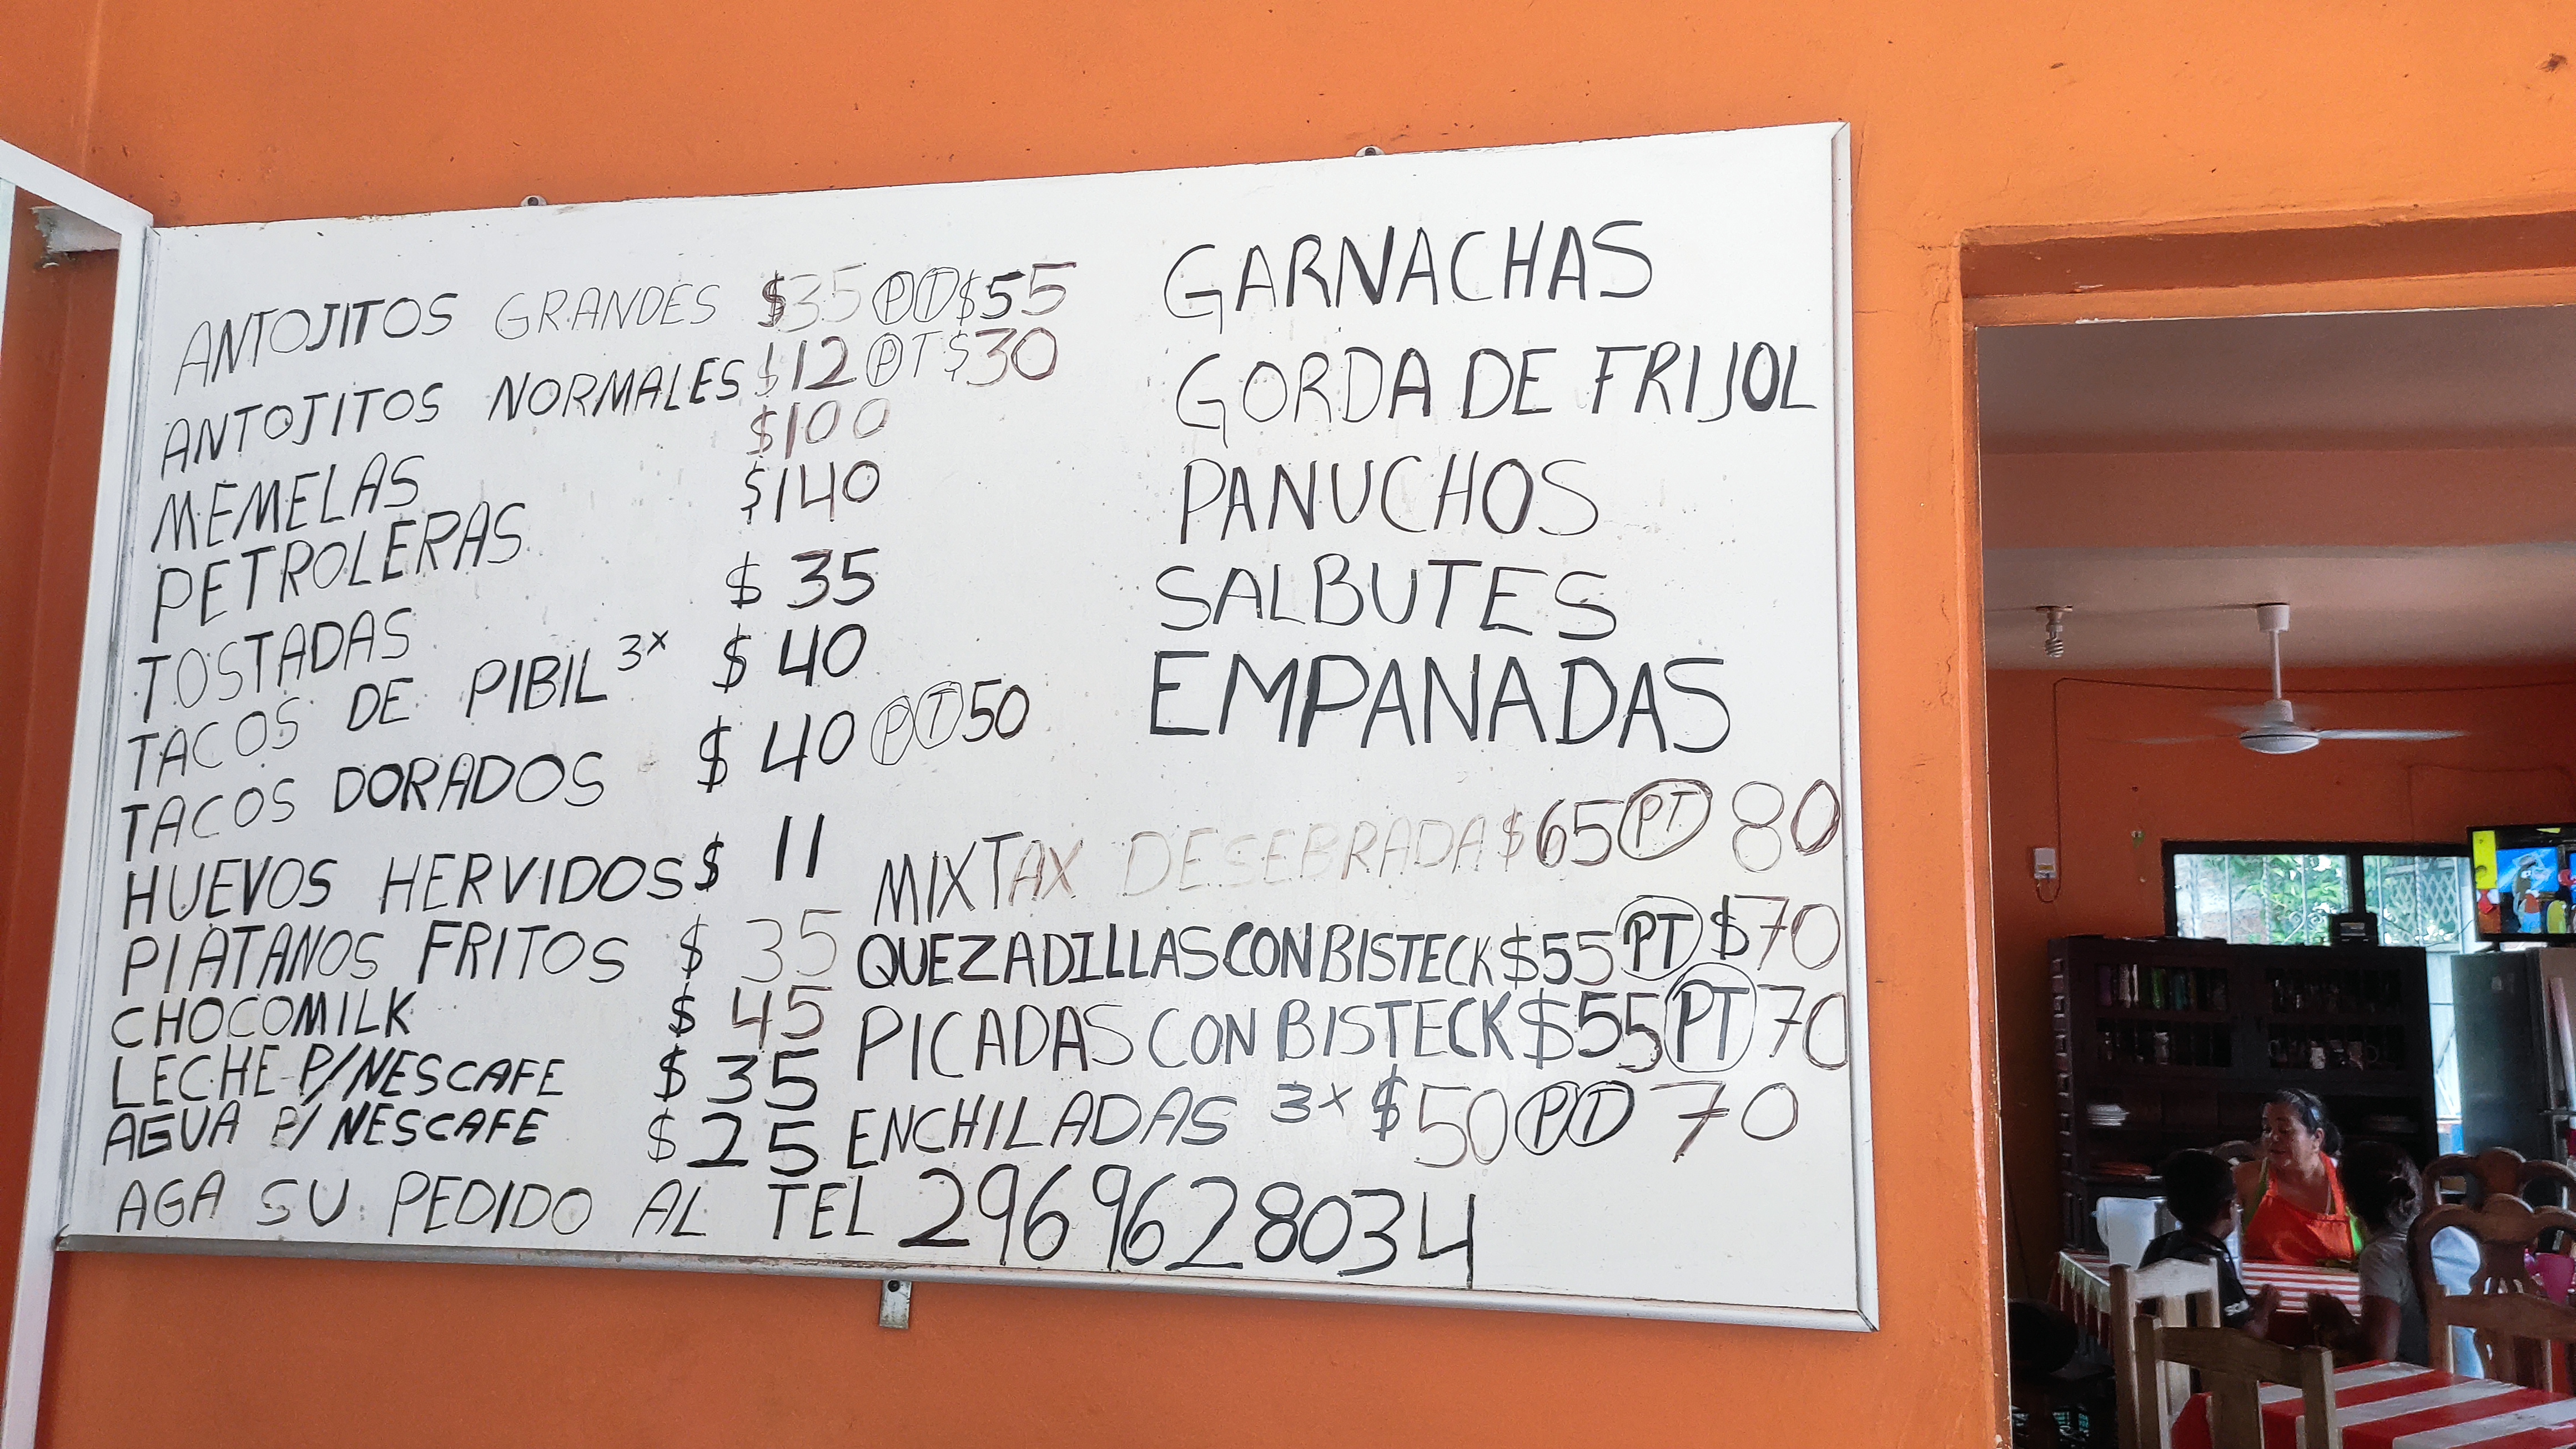 ANTOJITOS GRANDES $35 PT $55
ANTOJITOS NORMALES $12 PT $30
MEMELAS $100
PETROLERAS $140
TOSTADAS $35
TACOS DE PIBIL 3x $40
TACOS DORADOS $40 PT 50
HUEVOS HERVIDOS $11
PLATANOS FRITOS $35
CHOCOMILK $45
LECHE P/NESCAFE $35
AGUA P/NESCAFE $25
GARNACHAS
GORDA DE FRIJOL
PANUCHOS
SALBUTES
EMPANADAS
MIXTAX DESEBRADA $65 PT 80
QUEZADILLAS CON BISTECK $55 PT $70
PICADAS CON BISTECK $55 PT 70
ENCHILADAS 3x $50 PT 70
AGA SU PEDIDO AL TEL 2969628034